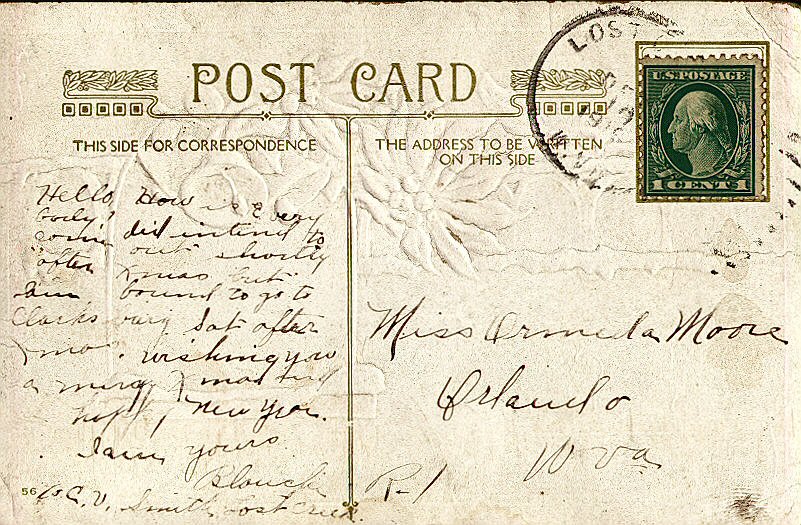 POST CARD
THIS SIDE FOR CORRESPONDENCE
THE ADDRESS TO BE WRITTEN
ON THIS SIDE
LOST
W.VA.
U.S. POSTAGE
1 CENT 1
Hello, How is Every
body? did intend to
come out shortly
after Xmas but
I am bound to go to
Clarksburg Sat after
Xmas. wishing you
a merry Xmas and
happy New Year.
I am yours
Blanch
C.V. Smith, Lost Creek.
56
Miss Ormeda Moore
Orlando
W Va
R-1